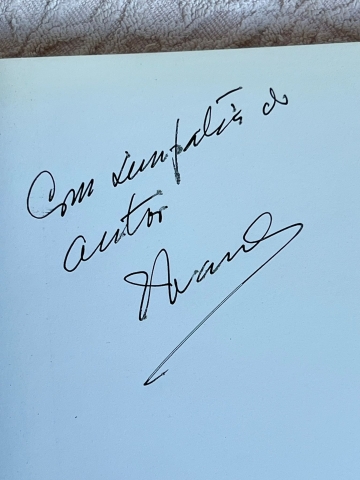 Com simpatia do
autor